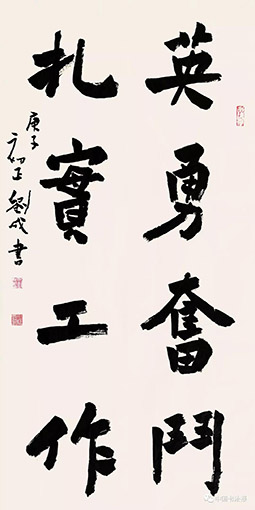 英勇奮鬥
扎實工作
庚子
正劉成書